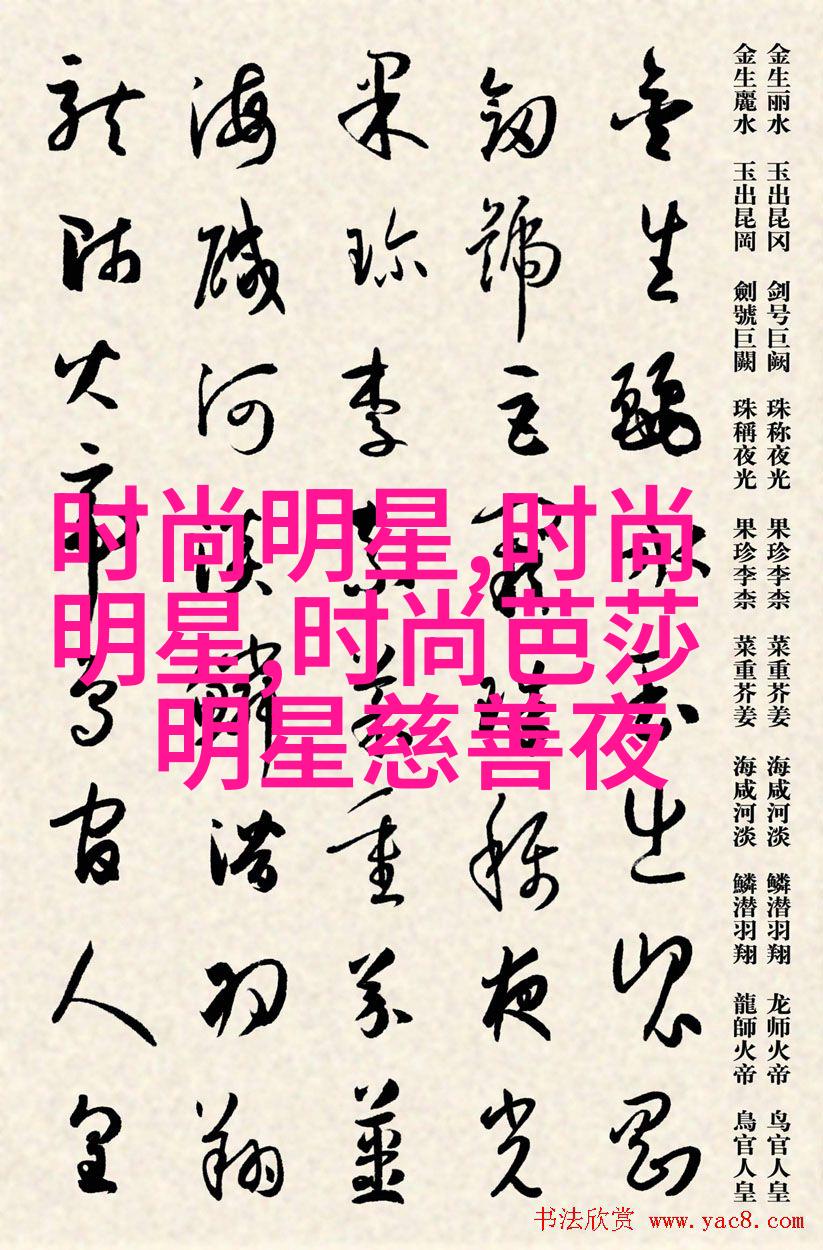 金生丽水 玉出昆冈 剑号巨阙 珠称夜光 果珍李柰 菜重芥姜 海咸河淡 鳞潜羽翔 龙师火帝 鸟官人皇
金生麗水 玉出昆岡 劍號巨闕 珠稱夜光 果珍李柰 菜重芥姜 海咸河淡 鱗潜羽翔 龍師火帝 鳥官人皇
金生麗水玉出崑岡
劍號巨闕珠稱夜光
果珍李柰菜重芥薑
海醎河淡鱗潜羽翔
龍師火帝鳥官人皇
时尚明星,时尚
明星,时尚芭莎
明星慈善夜
书法欣赏 www.yac8.com